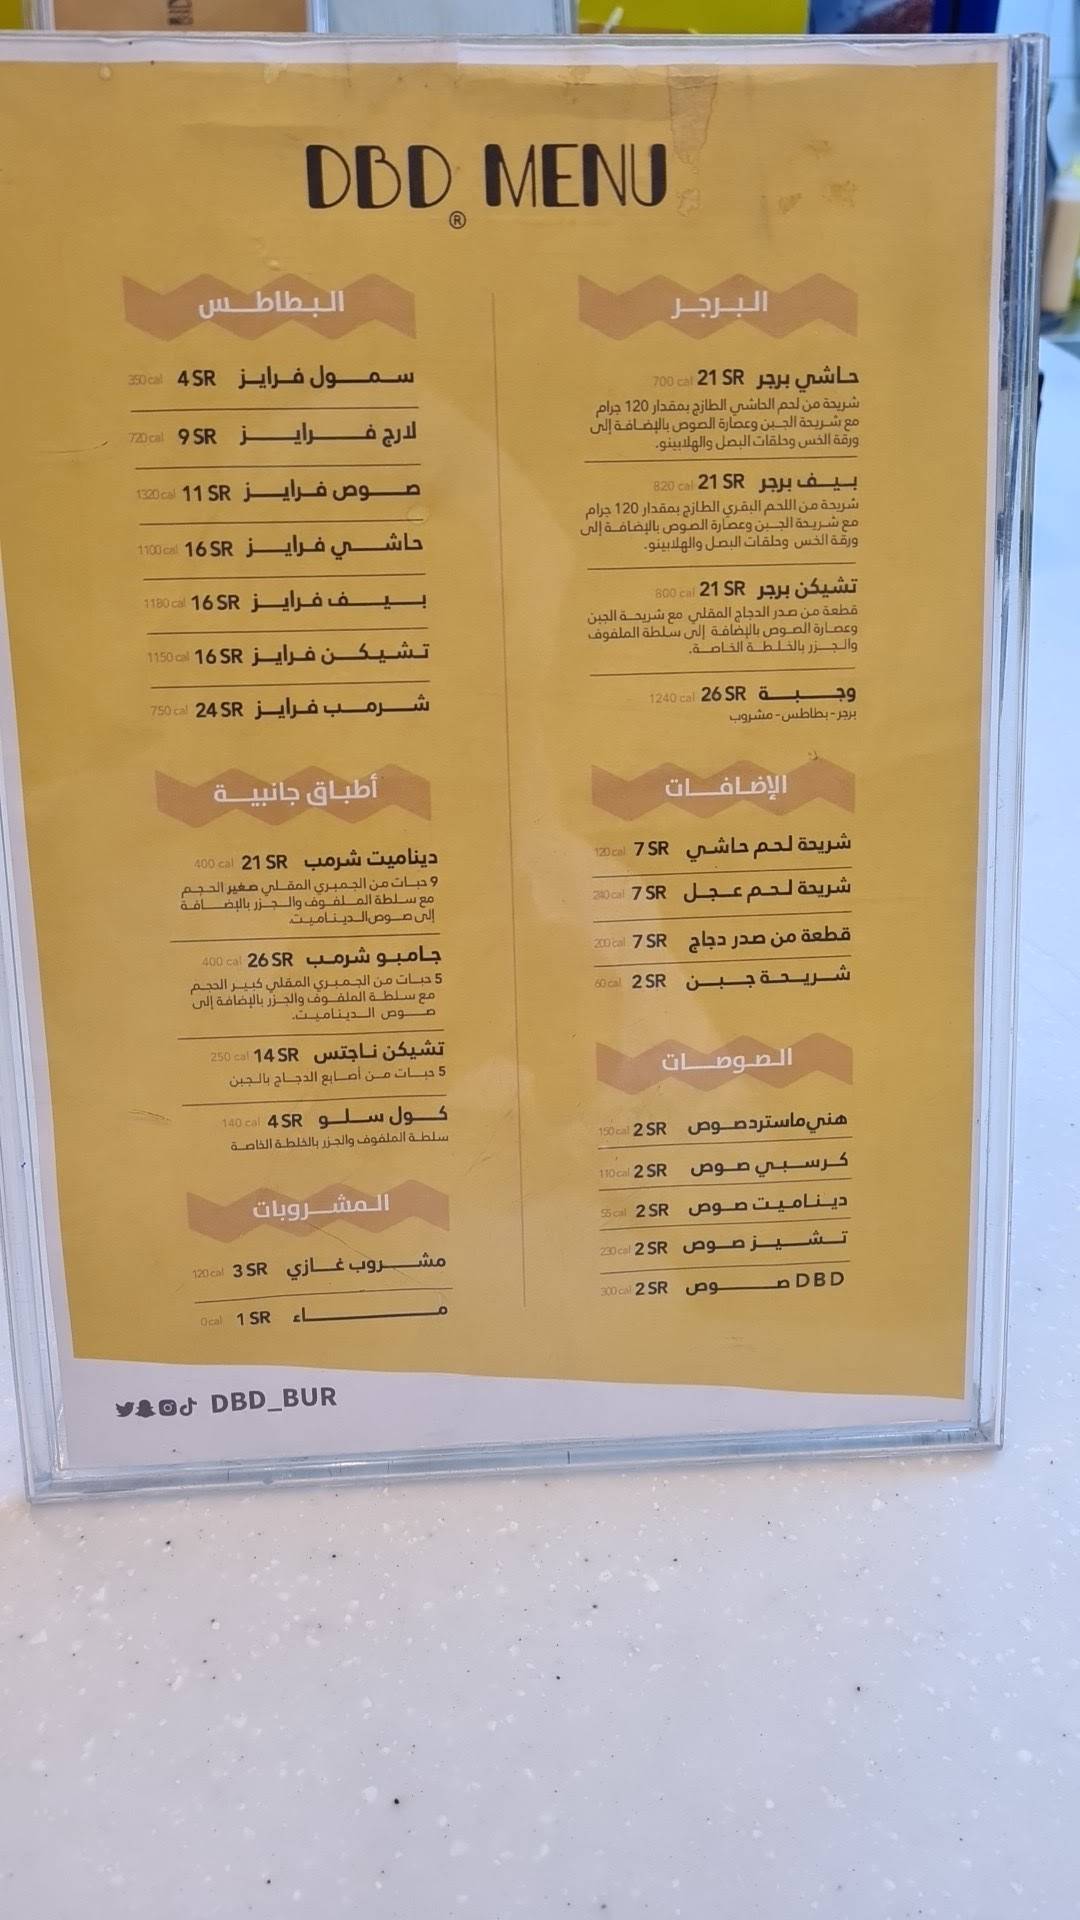 DBD® MENU
البرجر
حاشي برجر 21 SR 700 cal
شريحة من لحم الحاشي الطازج بمقدار 120 جرام
مع شريحة الجبن وعصارة الصوص بالإضافة إلى
ورقة الخس وحلقات البصل والهلابينو.
بيف برجر 21 SR 820 cal
شريحة من اللحم البقري الطازج بمقدار 120 جرام
مع شريحة الجبن وعصارة الصوص بالإضافة إلى
ورقة الخس وحلقات البصل والهلابينو.
تشيكن برجر 21 SR 800 cal
قطعة من صدر الدجاج المقلي مع شريحة الجبن
وعصارة الصوص بالإضافة إلى سلطة الملفوف
والجزر بالخلطة الخاصة.
وجبة 26 SR 1240 cal
برجر - بطاطس - مشروب
الإضافات
شريحة لحم حاشي 7 SR 120 cal
شريحة لحم عجل 7 SR 240 cal
قطعة من صدر دجاج 7 SR 200 cal
شريحة جبن 2 SR 60 cal
الصوصات
هني ماستردصوص 2 SR 150 cal
كرسبي صوص 2 SR 110 cal
ديناميت صوص 2 SR 55 cal
تشيز صوص 2 SR 230 cal
DBD صوص 2 SR 300 cal
البطاطس
سمول فرايز 4 SR 350 cal
لارج فرايز 9 SR 720 cal
صوص فرايز 11 SR 1320 cal
حاشي فرايز 16 SR 1100 cal
بيف فرايز 16 SR 1180 cal
تشيكن فرايز 16 SR 1150 cal
شرمب فرايز 24 SR 750 cal
أطباق جانبية
ديناميت شرمب 21 SR 400 cal
9 حبات من الجمبري المقلي صغير الحجم
مع سلطة الملفوف والجزر بالإضافة
إلى صوص الديناميت.
جامبو شرمب 26 SR 400 cal
5 حبات من الجمبري المقلي كبير الحجم
مع سلطة الملفوف والجزر بالإضافة إلى
صوص الديناميت.
تشيكن ناجتس 14 SR 250 cal
5 حبات من أصابع الدجاج بالجبن
كول سلو 4 SR 140 cal
سلطة الملفوف والجزر بالخلطة الخاصة
المشروبات
مشروب غازي 3 SR 120 cal
ماء 1 SR 0 cal
DBD_BUR